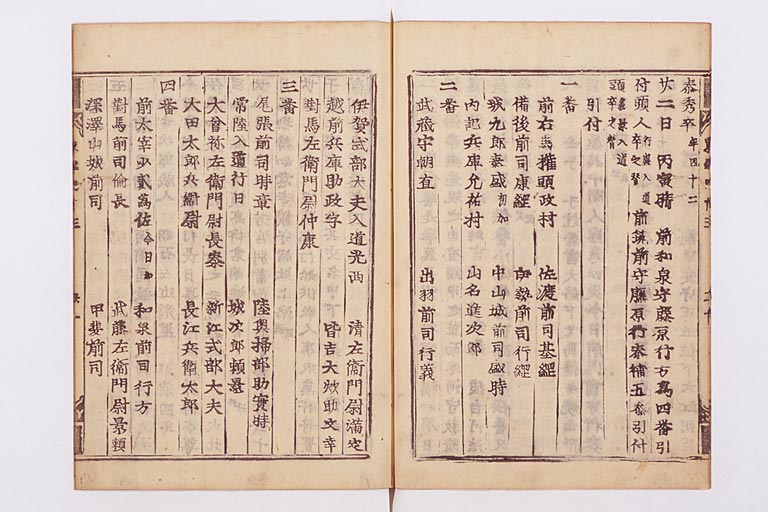 泰秀卒 年四十二
廿二日 丙寅晴 前和泉守藤原行方為四番引
付頭人 行蓮入道卒之替 前筑前守藤原行泰補五番引付
頭 入道卒之替
引付
一番
前右馬權頭政村 佐渡前司基綱
備後前司康經 伊勢前司行經
城九郎泰盛 初加 中山城前司盛時
内記兵庫允祐村 山名進次郎
二番
武藏守朝直 出羽前司行義
伊賀式部大夫入道光西 清左衛門尉滿定
越前兵庫助政宗 皆吉大炊助文幸
對馬左衛門尉仲康
三番
尾張前司時章 陸奥掃部助實時
常陸入道行日 城次郎頼景
大曾祢左衛門尉長泰 新江式部大夫
大田太郎兵衛尉 長江兵衛太郎
四番
前太宰少貳為佐 今日加 和泉前司行方
對馬前司倫長 武藤左衛門尉景頼
深澤山城前司 甲斐前司